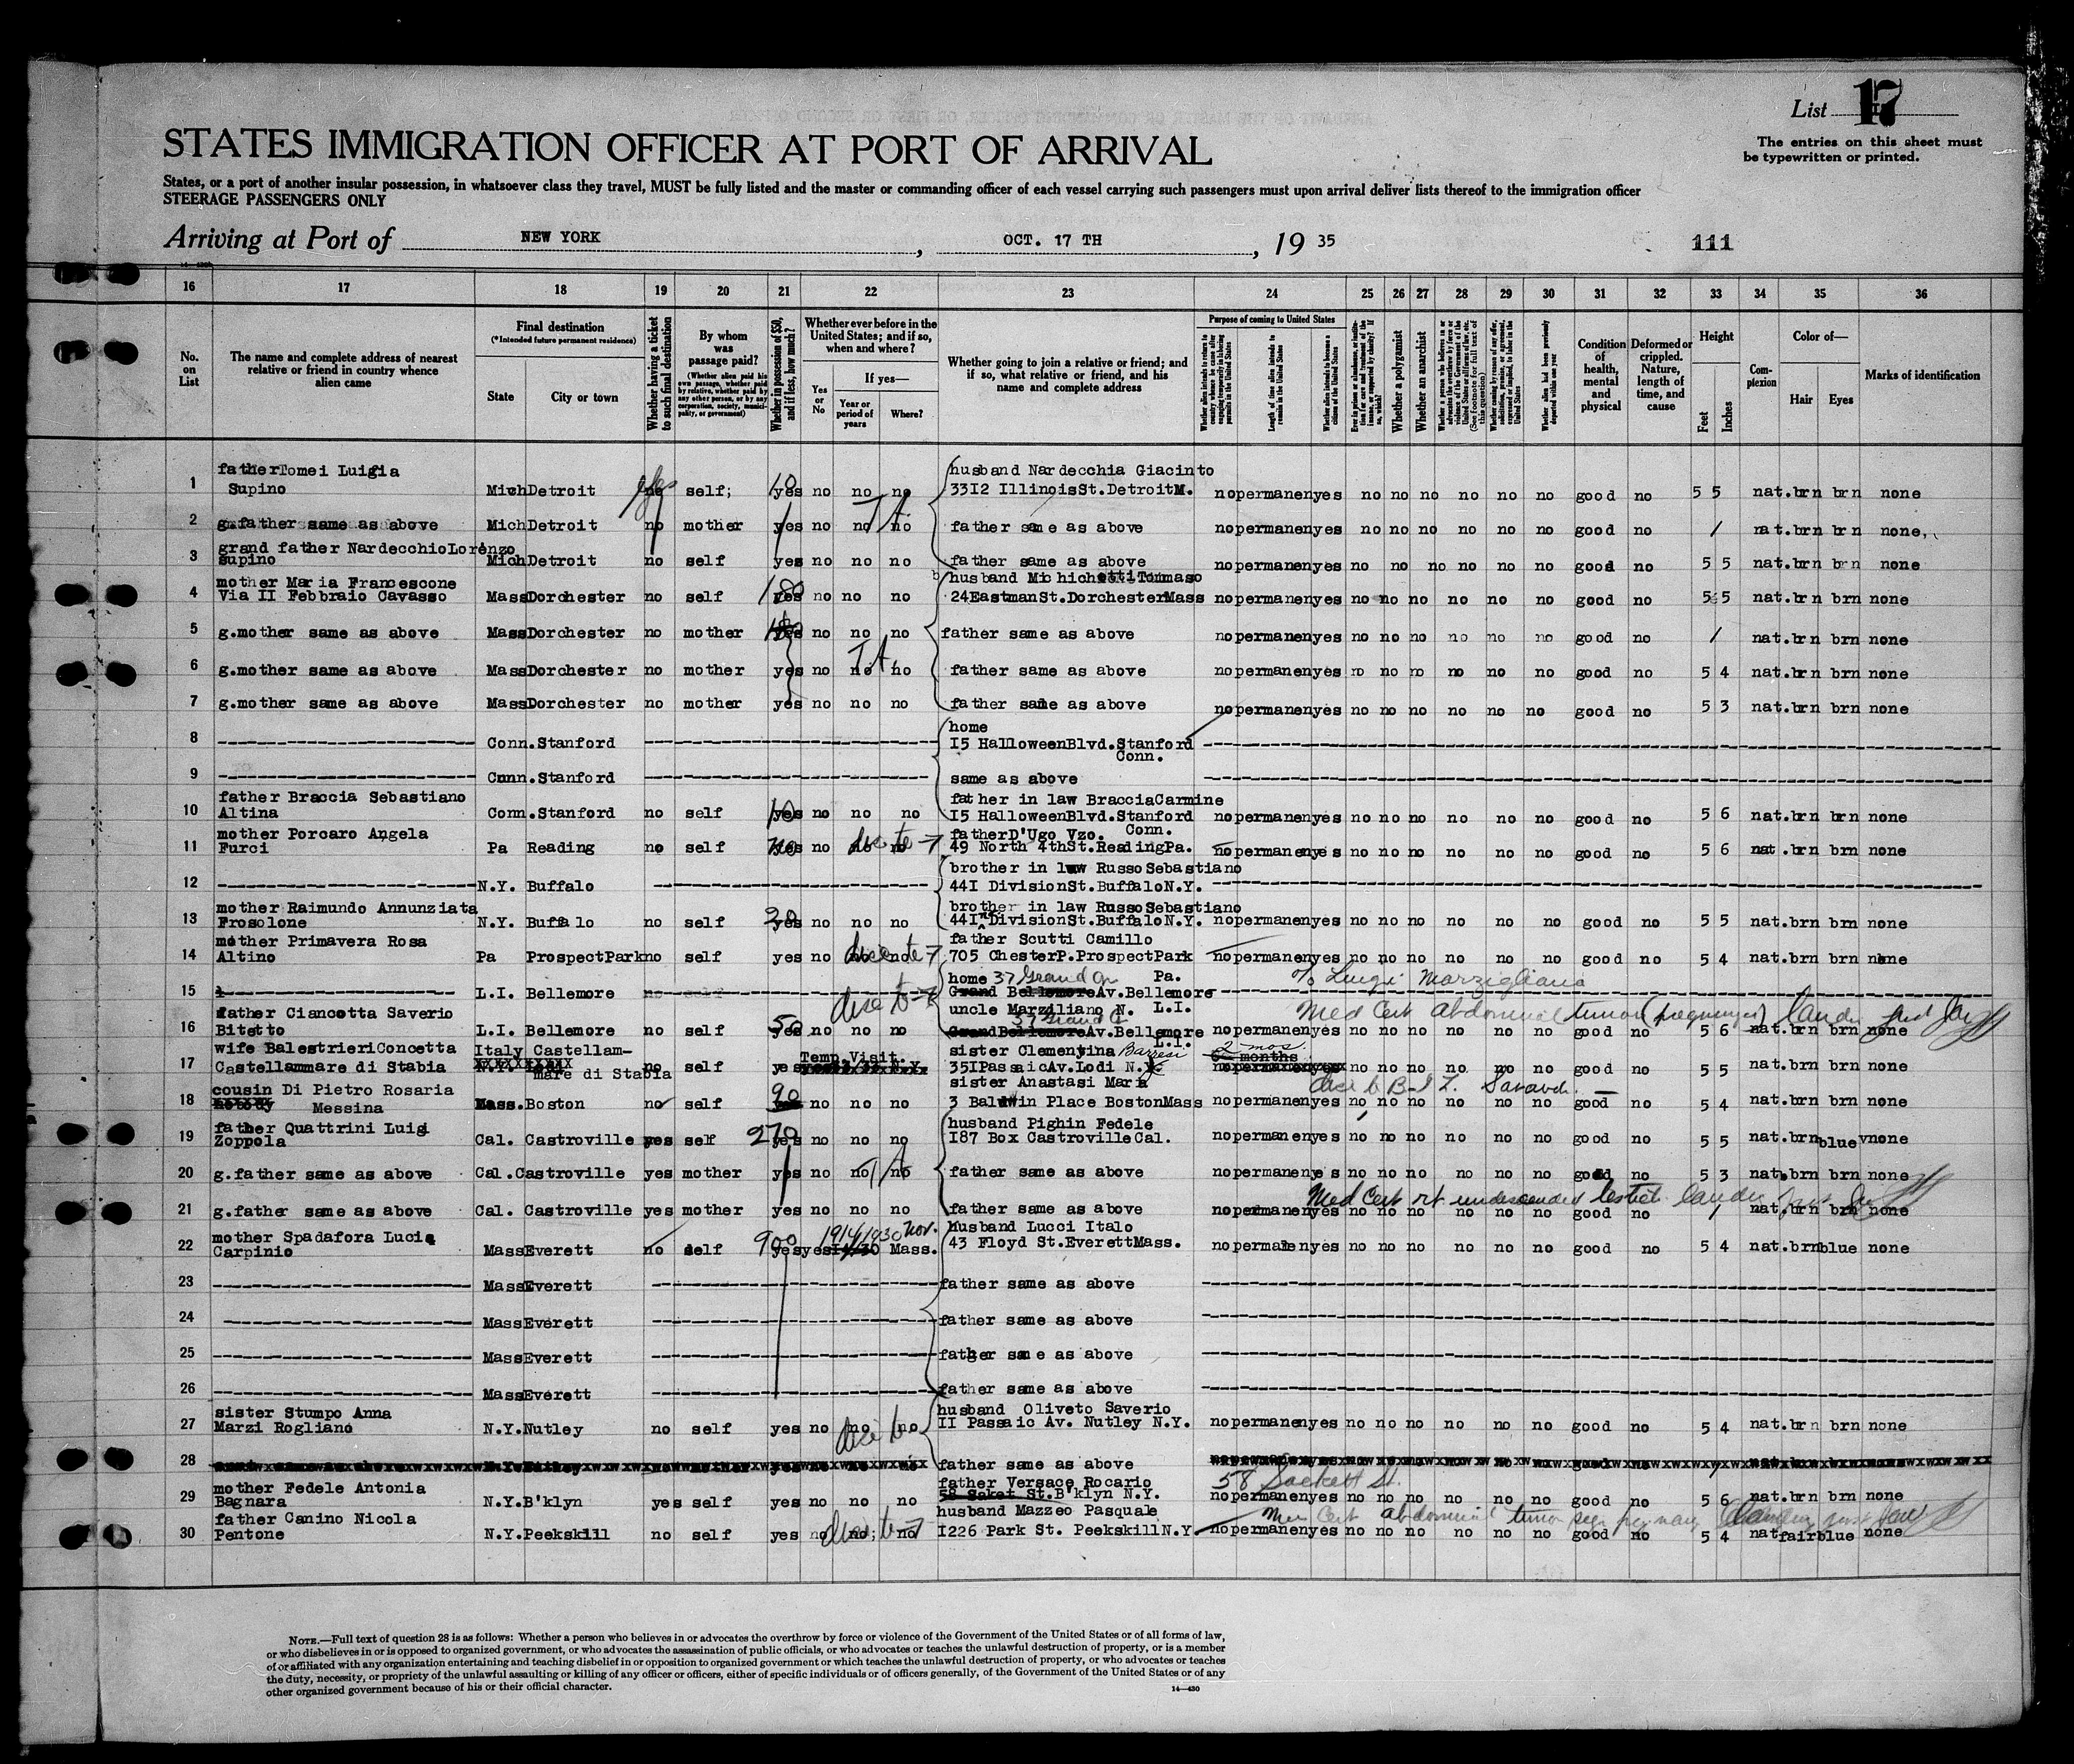 List 17
The entries on this sheet must
be typewritten or printed.
STATES IMMIGRATION OFFICER AT PORT OF ARRIVAL
States, or a port of another insular possession, in whatsoever class they travel, MUST be fully listed and the master or commanding officer of each vessel carrying such passengers must upon arrival deliver lists thereof to the immigration officer
STEERAGE PASSENGERS ONLY
Arriving at Port of NEW YORK, OCT. 17 TH, 19 35 111
16 17 18 19 20 21 22 23 24 25 26 27 28 29 30 31 32 33 34 35 36
No. on List
The name and complete address of nearest relative or friend in country whence alien came
Final destination
(*Intended future permanent residence)
State
City or town
Whether having a ticket to such final destination
By whom was passage paid?
(Whether alien paid his own passage, whether paid by relative, whether paid by any other person, or by any corporation, society, municipality, or government)
Whether in possession of $50, and if less, how much?
Whether ever before in the United States; and if so, when and where?
Yes or No
If yes—
Year or period of years
Where?
Whether going to join a relative or friend; and if so, what relative or friend, and his name and complete address
Purpose of coming to United States
Length of time alien intends to remain in the United States
Whether alien intends to become a citizen of the United States
Whether a polygamist
Whether an anarchist
Whether alien had been previously deported within one year
Condition of health, mental and physical
Deformed or crippled. Nature, length of time, and cause
Height
Feet
Inches
Complexion
Color of—
Hair
Eyes
Marks of identification
1 father Tomei Luigia
Supino Mich Detroit self; yes no no no husband Nardecchia Giacinto
33I2 Illinois St. Detroit M. no permanen yes no no no no no no good no 5 5 nat. brn brn none
2 g.father same as above Mich Detroit no mother yes no no no father same as above no permanen yes no no no no no no good no / nat. brn brn none,
3 grand father Nardecchio Lorenzo
Supino Mich Detroit no self yes no no no father same as above no permanen yes no no no no no no good no 5 5 nat. brn brn none
4 mother Maria Francescone
Via II Febbraio Cavasso Mass Dorchester no self yes no no no husband Michichetti Tommaso
24 Eastman St. Dorchester Mass no permanen yes no no no no no no good no 5 5 nat. brn brn none
5 g.mother same as above Mass Dorchester no mother yes no no no father same as above no permanen yes no no no no no no good no / nat. brn brn none
6 g.mother same as above Mass Dorchester no mother yes no no no father same as above no permanen yes no no no no no no good no 5 4 nat. brn brn none
7 g.mother same as above Mass Dorchester no mother yes no no no father same as above no permanen yes no no no no no no good no 5 3 nat. brn brn none
8 Conn. Stanford home
I5 Halloween Blvd. Stanford
Conn.
9 Conn. Stanford same as above
10 father Braccia Sebastiano
Altina Conn. Stanford no self 10 yes no no no father in law Braccia Carmine
I5 Halloween Blvd. Stanford
Conn. no permanen yes no no no no no no good no 5 6 nat. brn brn none
11 mother Porcaro Angela
Furci Pa Reading no self yes no no no father D'Ugo Vzo.
49 North 4th St. Reading Pa. no permanen yes no no no no no no good no 5 6 nat. brn brn none
12 N.Y. Buffalo brother in law Russo Sebastiano
44I Division St. Buffalo N.Y.
13 mother Raimundo Annunziata
Frosolone N.Y. Buffalo no self yes no no no brother in law Russo Sebastiano
44I Division St. Buffalo N.Y. no permanen yes no no no no no no good no 5 5 nat. brn brn none
14 mother Primavera Rosa
Altino Pa Prospect Park no self yes no no no father Scutti Camillo
705 Chester P. Prospect Park
Pa. no permanen yes no no no no no no good no 5 4 nat. brn brn none
15 L.I. Bellemore home 37 Grand Av
Grand Bellemore Av. Bellemore
L.I. c/o Luigi Marzigliano
16 father Ciancotta Saverio
Bitetto L.I. Bellemore no self 50 yes no no no uncle Marziliano N.
37 Grand
Grand Bellemore Av. Bellemore
L.I. Med Cert abdominal tumor (pregnancy)
no permanen yes no no no no no no good no 5 6 nat. brn brn none
17 wife Balestrieri Concetta
Castellammare di Stabia Italy Castellam-
mare di Stabia no self yes Temp. Visit. sister Clementina Barresi
35I Passaic Av. Lodi N.Y. 2 mos.
6 months no no no no no no good no 5 5 nat. brn brn none
18 cousin Di Pietro Rosaria
nobody Messina Mass. Boston no self 90 no no no sister Anastasi Maria
3 Baldwin Place Boston Mass no permanen yes no no no no no no good no 5 4 nat. brn brn none
19 father Quattrini Luigi
Zoppola Cal. Castroville yes self 270 yes no no no husband Pighin Fedele
I87 Box Castroville Cal. no permanen yes no no no no no no good no 5 5 nat. brn blue none
20 g.father same as above Cal. Castroville yes mother yes no no no father same as above no permanen yes no no no no no no good no 5 3 nat. brn brn none
Med Cert rt undescended testicle
21 g.father same as above Cal. Castroville yes mother yes no no no father same as above no permanen yes no no no no no no good no / nat. brn brn none
22 mother Spadafora Lucia
Carpinio Mass Everett no self 900 yes yes 1914/1930 Nov. Mass. husband Lucci Italo
43 Floyd St. Everett Mass. no permanen yes no no no no no no good no 5 4 nat. brn blue none
23 Mass Everett father same as above
24 Mass Everett father same as above
25 Mass Everett father same as above
26 Mass Everett father same as above
27 sister Stumpo Anna
Marzi Rogliano N.Y. Nutley no self yes no no no husband Oliveto Saverio
II Passaic Av. Nutley N.Y. no permanen yes no no no no no no good no 5 4 nat. brn brn none
28 father same as above
29 mother Fedele Antonia
Bagnara N.Y. B'klyn yes self yes no no no father Versace Rocario
58 Saket St. B'klyn N.Y. 58 Sackett St.
no permanen yes no no no no no no good no 5 6 nat. brn brn none
30 father Canino Nicola
Pentone N.Y. Peekskill no self yes no no; no husband Mazzeo Pasquale
I226 Park St. Peekskill N.Y. Med Cert abdominal tumor
no permanen yes no no no no no no good no 5 4 nat fair blue none
NOTE.—Full text of question 28 is as follows: Whether a person who believes in or advocates the overthrow by force or violence of the Government of the United States or of all forms of law,
or who disbelieves in or is opposed to organized government, or who advocates the assassination of public officials, or who advocates or teaches the unlawful destruction of property, or is a member
of or affiliated with any organization entertaining and teaching disbelief in or opposition to organized government or which teaches the unlawful destruction of property, or who advocates or teaches
the duty, necessity, or propriety of the unlawful assaulting or killing of any officer or officers, either of specific individuals or of officers generally, of the Government of the United States or of any
other organized government because of his or their official character.
14—430